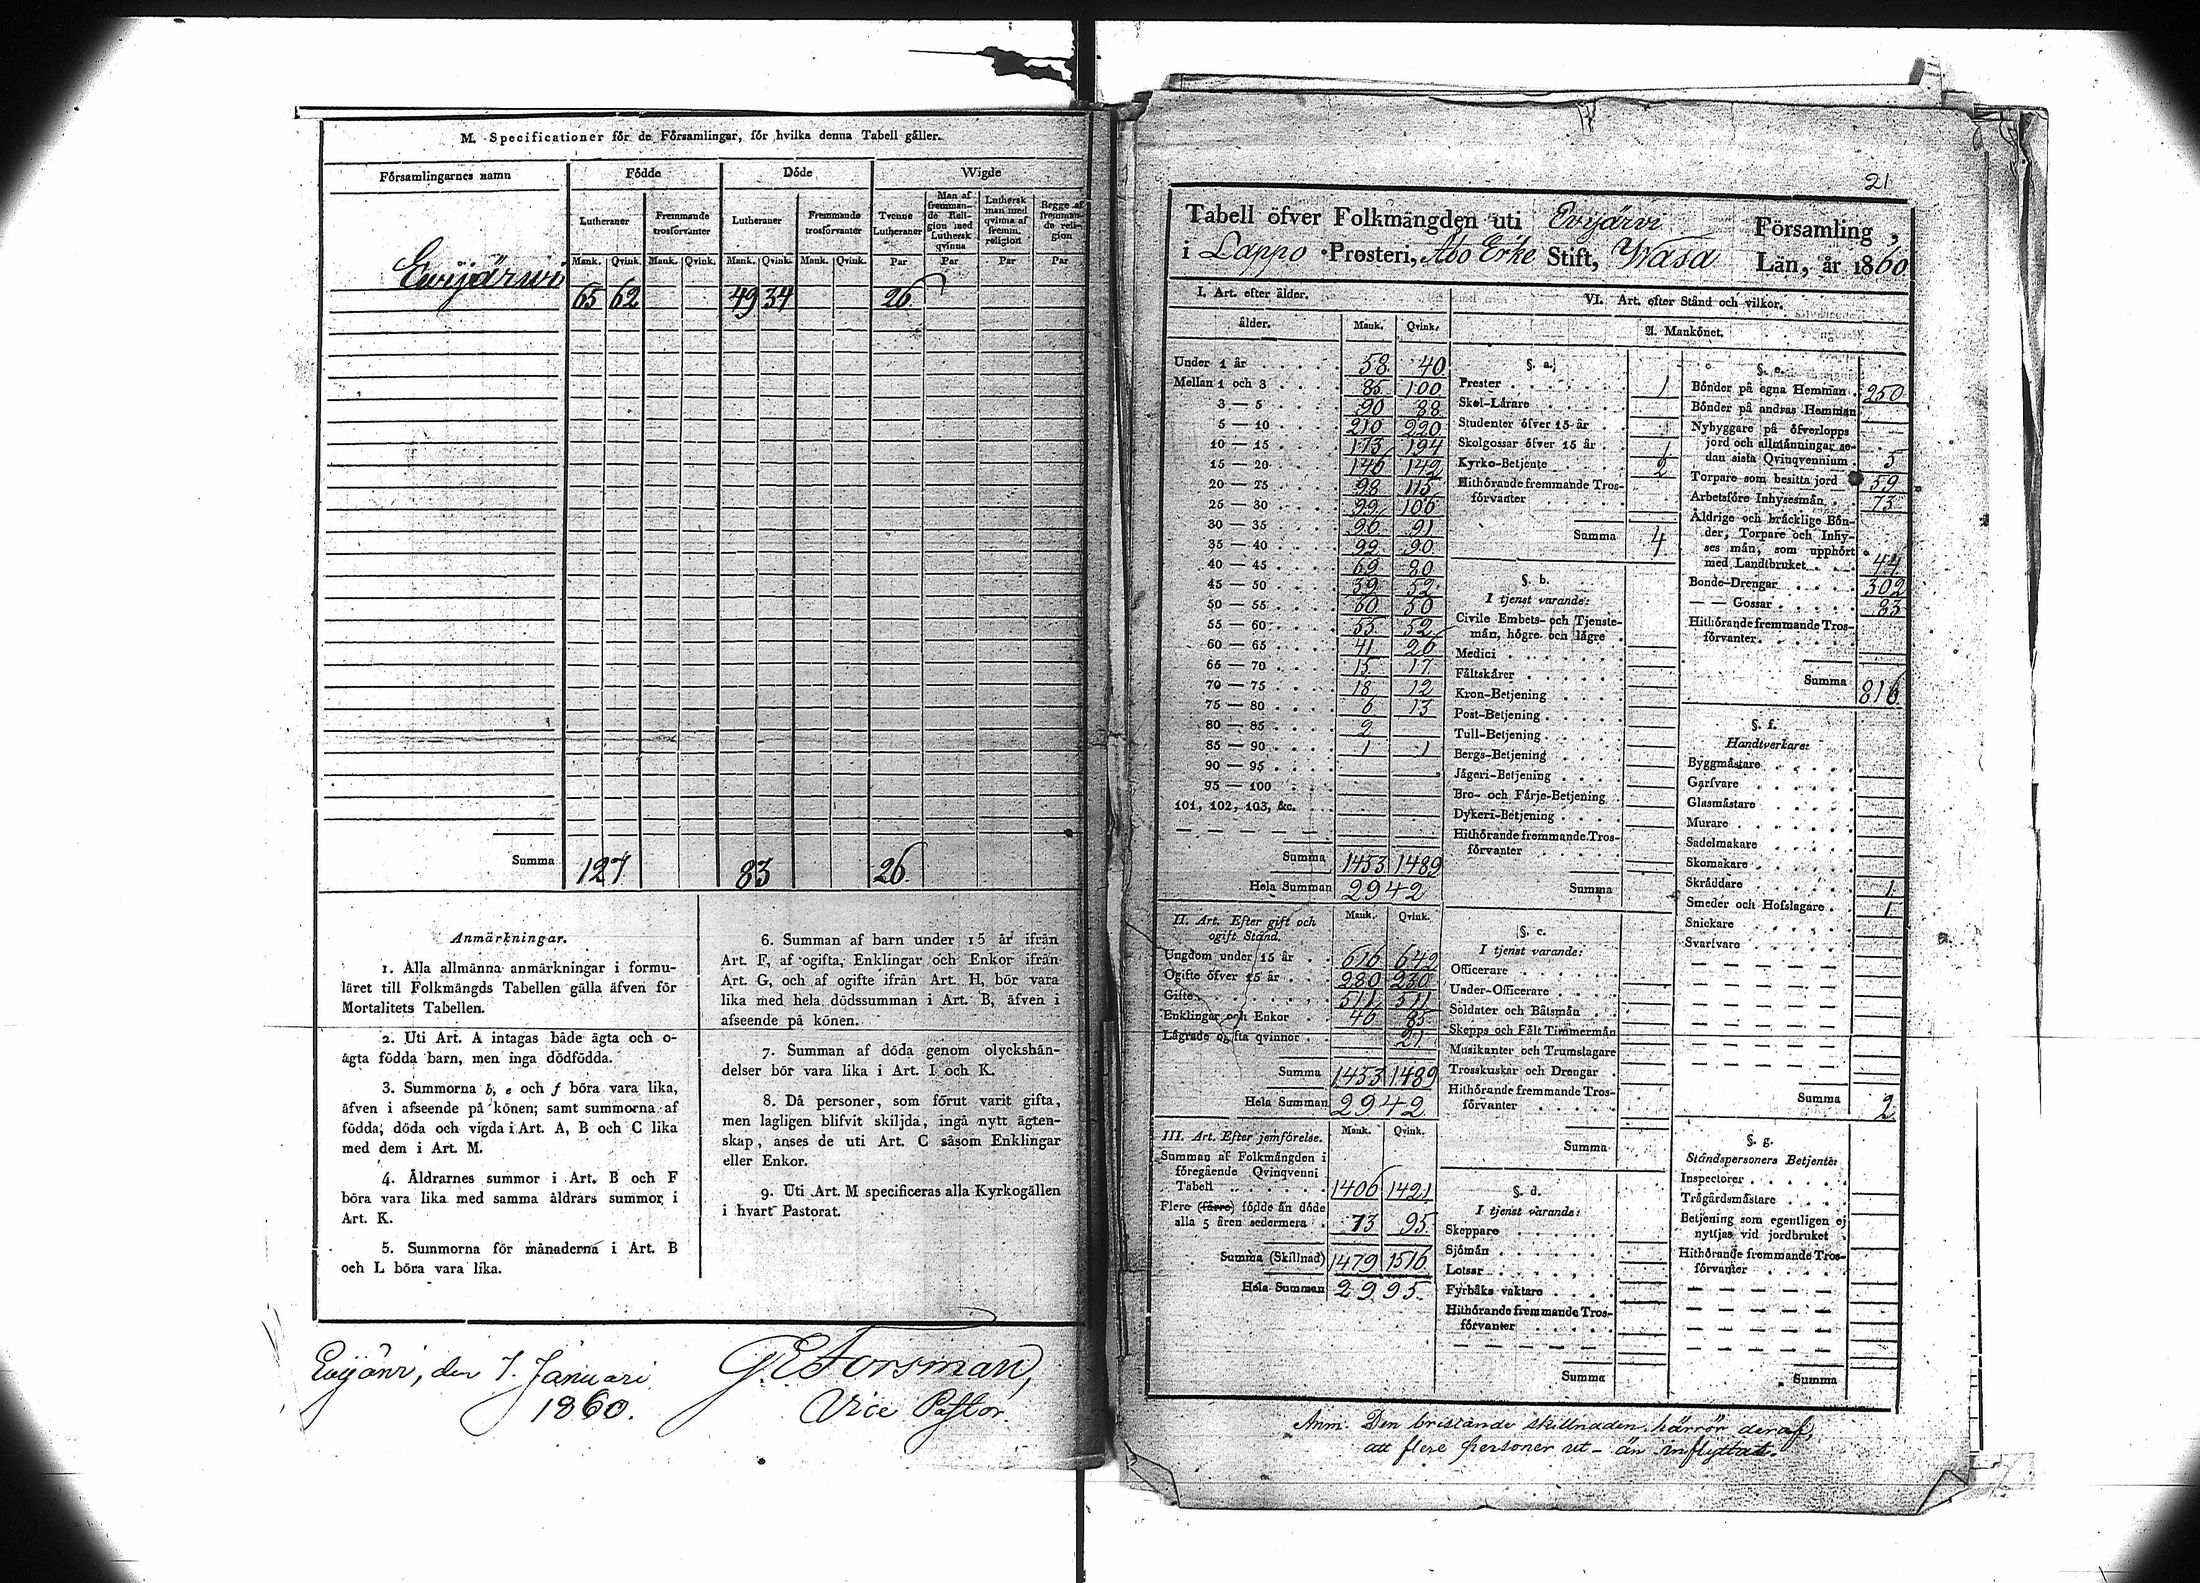 M. Specificationer för de Församlingar, för hvilka denna Tabell gäller.
Församlingarnes namn Födde Döde Wigde
Lutheraner Fremmande trosförvanter Lutheraner Fremmande trosförvanter Tvenne Lutheraner Man af fremmande Religion med Luthersk qvinna Luthersk man med qvinna af fremm. religion Begge af fremmande religion
Mank. Qvink. Mank. Qvink. Mank. Qvink. Mank. Qvink. Par Par Par Par
Ewijärwi 65 62 49 34 26
Summa 127 83 26
Anmärkningar.
1. Alla allmänna anmärkningar i formu-
läret till Folkmängds Tabellen gälla äfven för
Mortalitets Tabellen.
2. Uti Art. A intagas både ägta och o-
ägta födda barn, men inga dödfödda.
3. Summorna b, e och f böra vara lika,
äfven i afseende på könen; samt summorna af
födda, döda och vigda i Art. A, B och C lika
med dem i Art. M.
4. Åldrarnes summor i Art. B och F
böra vara lika med samma åldrars summor i
Art. K.
5. Summorna för månaderna i Art. B
och L böra vara lika.
6. Summan af barn under 15 år ifrån
Art. F, af ogifta, Enklingar och Enkor ifrån
Art. G, och af ogifte ifrån Art. H, bör vara
lika med hela dödssumman i Art. B, äfven i
afseende på könen.
7. Summan af döda genom olyckshän-
delser bör vara lika i Art. I och K.
8. Då personer, som förut varit gifta,
men lagligen blifvit skiljda, ingå nytt ägten-
skap, anses de uti Art. C såsom Enklingar
eller Enkor.
9. Uti Art. M specificeras alla Kyrkogällen
i hvart Pastorat.
Evijärvi, den 7. Januari
1860.
G. E. Forsman,
Vice Pastor
21
Tabell öfver Folkmängden uti Evijärvi Församling,
i Lappo Prosteri, Åbo Erke Stift, Wasa Län, år 1860
I. Art. efter ålder.
ålder. Mank. Qvink.
Under 1 år 58 40
Mellan 1 och 3 85 100
3 — 5 90 88
5 — 10 210 220
10 — 15 173 194
15 — 20 146 142
20 — 25 98 115
25 — 30 99 106
30 — 35 96 91
35 — 40 99 90
40 — 45 69 80
45 — 50 39 52
50 — 55 60 50
55 — 60 55 52
60 — 65 41 26
65 — 70 15 17
70 — 75 18 12
75 — 80 6 13
80 — 85 2
85 — 90 1 1
90 — 95
95 — 100
101, 102, 103, &c.
Summa 1453 1489
Hela Summan 2942
II. Art. Efter gift och
ogift Stånd. Mank. Qvink.
Ungdom under 15 år 616 642
Ogifte öfver 15 år 280 230
Gifte 511 511
Enklingar och Enkor 46 85
Lägrade ogifta qvinnor 21
Summa 1453 1489
Hela Summan 2942
III. Art. Efter jemförelse. Mank. Qvink.
Summan af Folkmängden i
föregående Qvinqvenni
Tabell 1406 1421
Flere (färre) födde än döde
alla 5 åren sedermera 73 95
Summa (Skillnad) 1479 1516
Hela Summan 2995.
VI. Art. efter Stånd och vilkor.
A. Mankönet.
§. a.
Prester 1
Skol-Lärare
Studenter öfver 15 år
Skolgossar öfver 15 år 1
Kyrko-Betjente 2
Hithörande fremmande Tros-
förvanter
Summa 4
§. b.
I tjenst varande:
Civile Embets- och Tjenste-
män, högre och lägre
Medici
Fältskärer
Kron-Betjening
Post-Betjening
Tull-Betjening
Bergs-Betjening
Jägeri-Betjening
Bro- och Färje-Betjening
Dykeri-Betjening
Hithörande fremmande Tros-
förvanter
Summa
§. c.
I tjenst varande:
Officerare
Under-Officerare
Soldater och Båtsmän
Skepps och Fält Timmermän
Musikanter och Trumslagare
Trosskuskar och Drengar
Hithörande fremmande Tros-
förvanter
Summa
§. d.
I tjenst varande:
Skeppare
Sjömän
Lotsar
Fyrbåks vaktare
Hithörande fremmande Tros-
förvanter
Summa
§. e.
Bönder på egna Hemman 250
Bönder på andras Hemman
Nybyggare på öfverlopps
jord och allmänningar se-
dan sista Qvinqvennium 5
Torpare som besitta jord 59
Arbetsföre Inhysesmän 73
Åldrige och bräcklige Bön-
der, Torpare och Inhy-
ses män, som upphört
med Landtbruket 44
Bonde-Drengar 302
— — Gossar 83
Hithörande fremmande Tros-
förvanter
Summa 816
§. f.
Handtverkare:
Byggmästare
Garfvare
Glasmästare
Murare
Sadelmakare
Skomakare
Skräddare 1
Smeder och Hofslagare 1
Snickare
Svarfvare
Summa 2
§. g.
Ståndspersoners Betjente:
Inspectorer
Trägårdsmästare
Betjening som egentligen ej
nyttjas vid jordbruket
Hithörande fremmande Tros-
förvanter
Summa
Anm. Den bristande skillnaden härrör deraf,
att flere personer ut- än inflyttat.